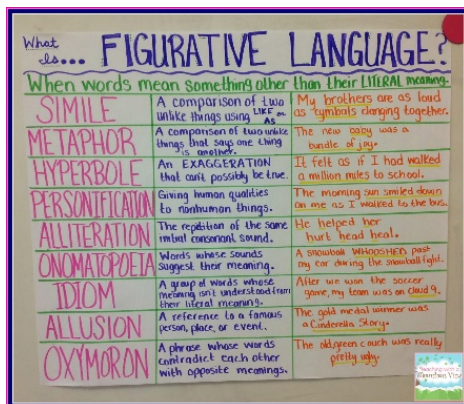 What
Is... FIGURATIVE LANGUAGE?
When words mean something other than their LITERAL meaning.
SIMILE
A comparison of two
unlike things using LIKE or
AS
My brothers are as loud
as cymbals clanging together.
METAPHOR
A comparison of two unlike
things that says one thing
is another.
The new baby was a
bundle of joy.
HYPERBOLE
An EXAGGERATION
that can't possibly be true.
It felt as if I had walked
a million miles to school.
PERSONIFICATION
Giving human qualities
to nonhuman things.
The morning sun smiled down
on me as I walked to the bus.
ALLITERATION
The repetition of the same
initial consonant sound.
He helped her
hurt head heal.
ONOMATOPOEIA
Words whose sounds
suggest their meaning.
A snowball WHOOSHED past
my ear during the snowball fight.
IDIOM
A group of words whose
meaning isn't understood from
their literal meaning.
After we won the soccer
game, my team was on cloud 9.
ALLUSION
A reference to a famous
person, place, or event.
The gold medal winner was
a Cinderella Story.
OXYMORON
A phrase whose words
contradict each other
with opposite meanings.
The old, green couch was really
pretty ugly.
Teaching with a
Mountain View